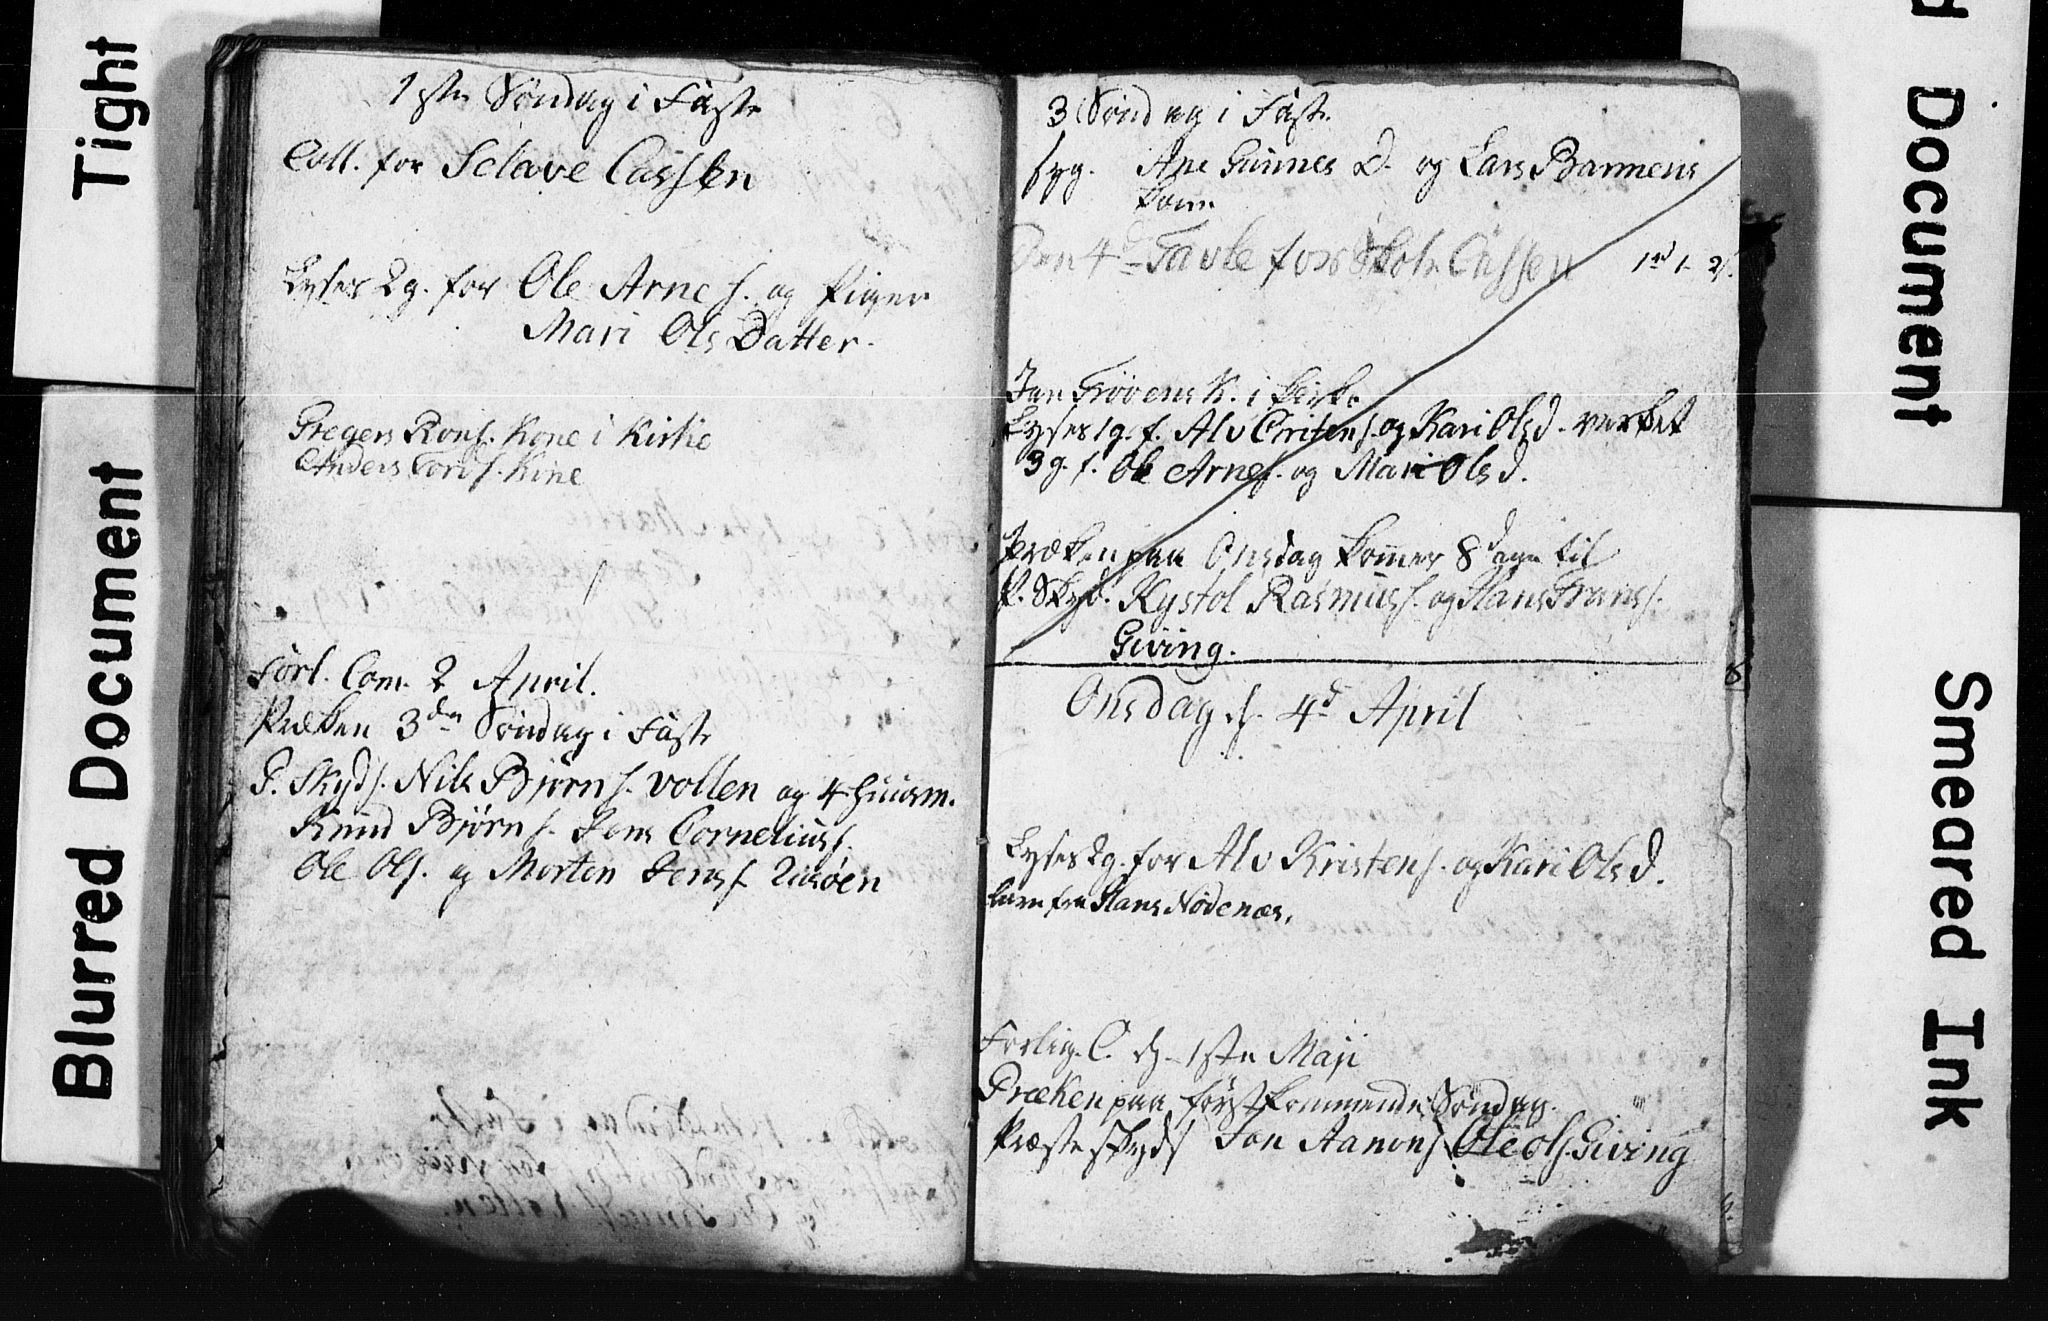 Tight
Blurred Document
1ste Søndag i Faste
Coll. for Sclave Cassen
Lyses 2 g. for Ole Arne s. og Pigen
Mari Ols Datter.
Gregers Kone i Kirke
Anders Kone
Forl. Com. 2 April.
Præken 3die Søndag i Faste
P. Skyds. Nils Bjørn s. vollen og 4 Huusm.
Knud Bjørn s. Jens Cornelius s.
Ole Ols. og Morten Jens s.
3 Søndag i Faste
syg. Ane Gunnes D. og Lars Barmens
Kone
Den 4d Tavle for Skole Cassen
Jan Frøvens K. i Kirke
Lyses 1 g. f. Alv Cristens. og Kari Olsd. verket
3 g. f. Ole Arnes. og Mari Olsd.
Præken paa Onsdag kommer 8 dage til
P. Skyd. Kystol Rasmuss. og Hans Franss.
Giving.
Onsdag d. 4d April
Lyses 2 g. for Alv Kristens. og Kari Olsd.
fra Hans Nødenæs.
Forlig. C. d. 1ste Maji
Præken paa førstkommende Søndag.
Præsteskyds Jon Aanons. Ole Ols. Giving
Document
Smeared Ink